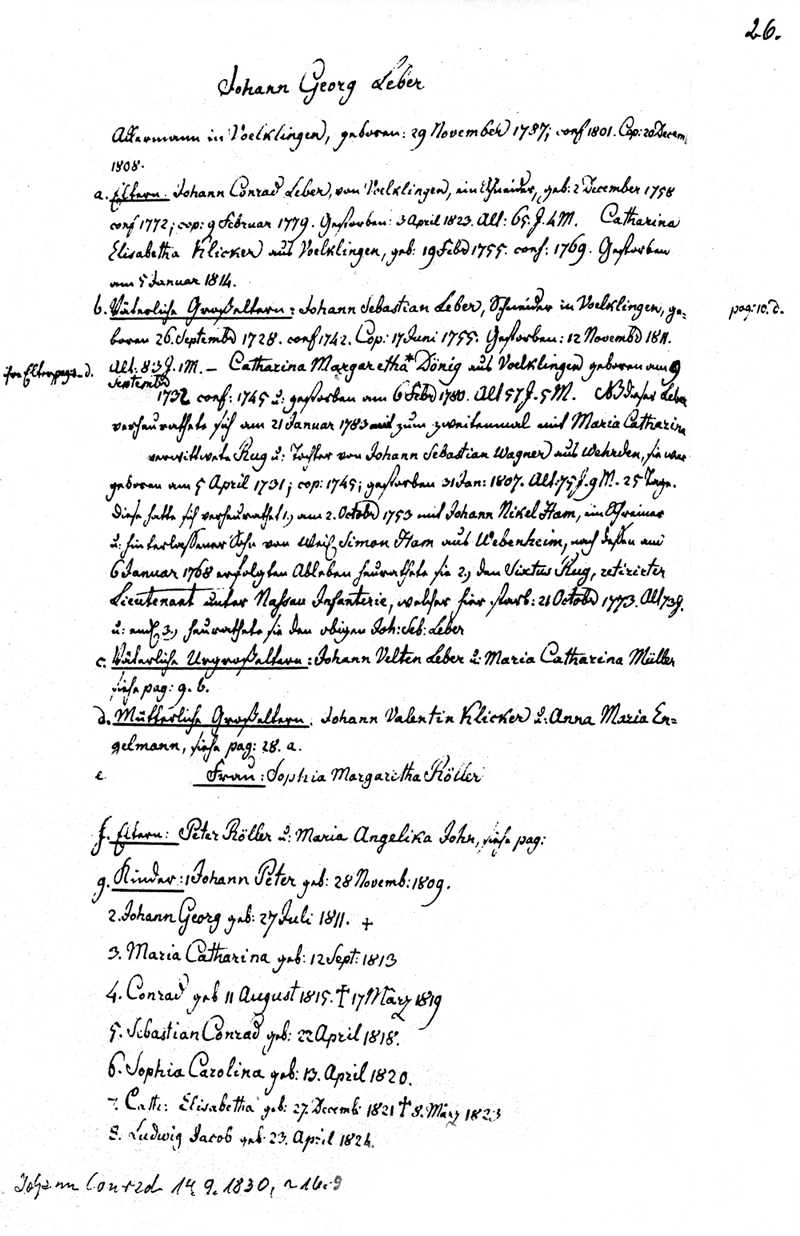 26.
Johann Georg Leber
Akermann in Voelklingen, geboren: 29 November 1787; conf 1801. Cop: 20 Decem,
1808.
a. Eltern. Johann Conrad Leber, von Voelklingen, ein Schneider, geb: 2 December 1758
conf 1772; cop: 9 Februar 1779. Gestorben: 3 April 1823. Alt: 65. J. 4 M. Catharina
Elisabetha Klicker aus Voelklingen, geb: 19 Febr 1755. conf: 1769. Gestorben
am 5 Januar 1814.
b. Väterliche Großeltern: Johann Sebastian Leber, Schneider in Voelklingen, ge= pag: 10. d.
boren 26. Septembr 1728. conf 1742. Cop: 17 Juni 1755. Gestorben: 12 Novembr 1811.
Alt: 83 J. 1 M. – Catharina Margaretha* Dönig aus Voelklingen geboren am 9
d. Septembr
1732 conf: 1745 u: gestorben am 6 Febr 1780. Alt 57 J. 5 M. NB dieser Leber
verheurathete sich am 21 Januar 1783 zum zweitenmal mit Maria Catharina
verwittwete Rug u: Tochter von Johann Sebastian Wagner aus Wehrden, sie war
geboren am 5 April 1731; cop: 1745; gestorben 31 Jan: 1807. Alt: 75 J. 9 M. 25 Tage.
Diese hatte sich verheurathet 1, am 2. Octobr 1753 mit Johann Nikel Ham, ein Schreiner
u: hinterlassener Sohn von Simon Ham aus Webenheim, nach deßen am
6 Januar 1768 erfolgten Ableben heurathete sie 2, den Sixtus Rug, retirirter
Lieutenant unter Nassau Infanterie, welcher hier starb: 21 Octobr 1773. Alt 73 J.
u: endl. 3, heurathete sie den obigen Joh: Seb: Leber
c. Väterliche Urgroßeltern: Johann Velten Leber u: Maria Catharina Müller
siehe pag: 9. b.
d. Mütterliche Großeltern. Johann Valentin Klicker u: Anna Maria En=
gelmann, siehe pag: 28. a.
e. Frau: Sophia Margaritha Röller
f. Eltern: Peter Röller u: Maria Angelika John, siehe pag:
g. Kinder: 1 Johann Peter geb: 28 Novemb: 1809.
2. Johann Georg geb: 27 Juli 1811. +
3. Maria Catharina geb: 12 Sept: 1813
4. Conrad geb 11 August 1815. † 17 März 1819
5. Sebastian Conrad geb: 22 April 1818.
6. Sophia Carolina geb: 13. April 1820.
7. Cath: Elisabetha geb: 27. Decemb 1821 † 8. März 1823
8. Ludwig Jacob geb 23. April 1824.
Johann Conrad 14. 9. 1830,